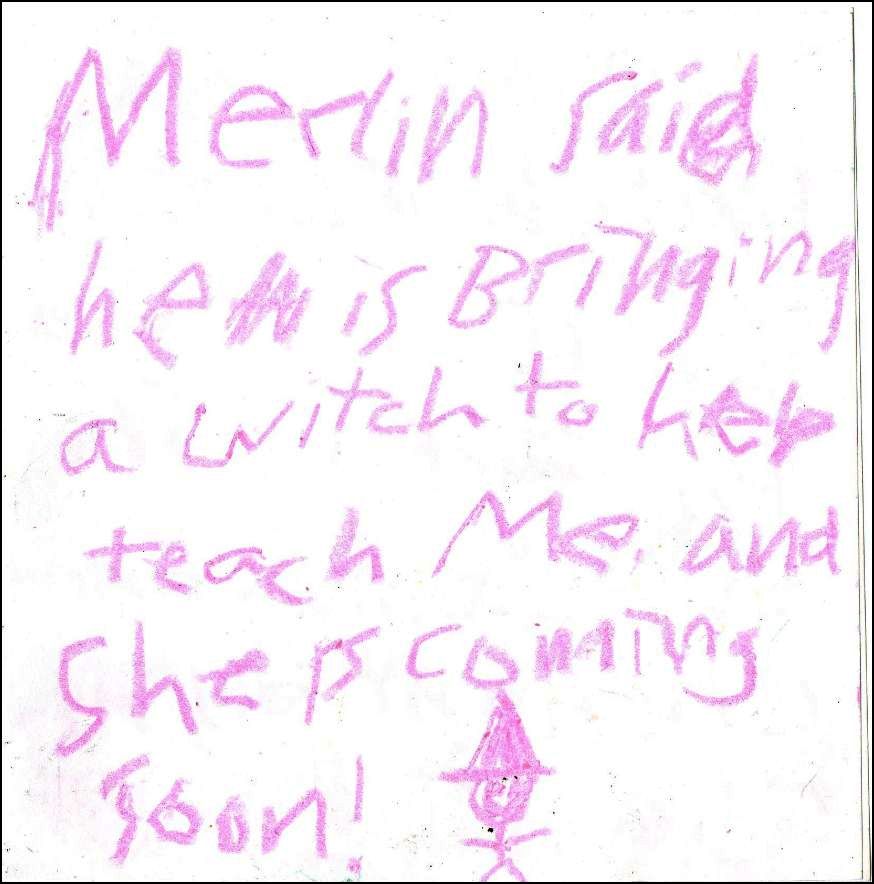 Merlin said
he is Bringing
a witch to help
teach Me. and
she is coming
soon!